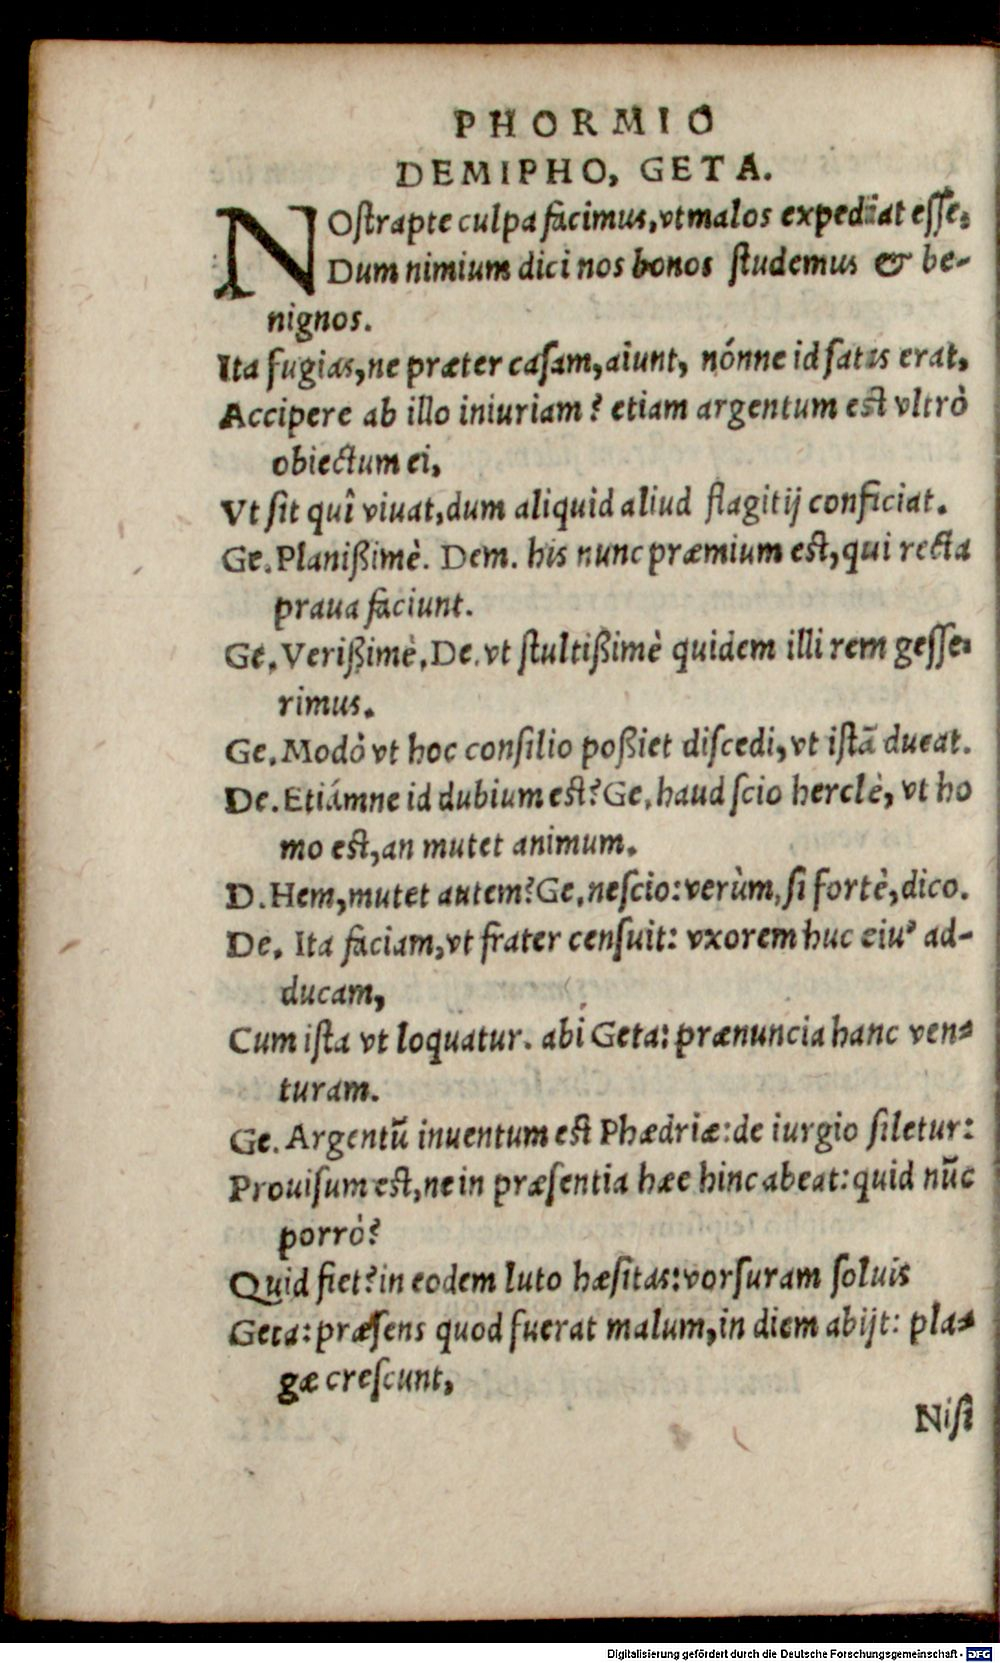 PHORMIO
DEMIPHO, GETA.
NOſtrapte culpa facimus, vt malos expediat eſſe,
Dum nimium dici nos bonos ſtudemus & be-
nignos.
Ita fugias, ne præter caſam, aiunt, nónne id ſatis erat,
Accipere ab illo iniuriam? etiam argentum eſt vltrò
obiectum ei,
Vt ſit quî viuat, dum aliquid aliud flagitij conficiat.
Ge. Planißimè. Dem. his nunc præmium eſt, qui recta
praua faciunt.
Ge. Verißimè. De. vt ſtultißimè quidem illi rem geſſe-
rimus.
Ge. Modò vt hoc conſilio poßiet diſcedi, vt iſtã ducat.
De. Etiámne id dubium eſt? Ge. haud ſcio herclè, vt ho
mo eſt, an mutet animum.
D. Hem, mutet autem? Ge. neſcio: verùm, ſi fortè, dico.
De. Ita faciam, vt frater cenſuit: vxorem huc eiuꝰ ad-
ducam,
Cum iſta vt loquatur. abi Geta: prænuncia hanc ven-
turam.
Ge. Argentũ inuentum eſt Phædriæ: de iurgio ſiletur:
Prouiſum eſt, ne in præſentia hæc hinc abeat: quid nũc
porrò?
Quid fiet? in eodem luto hæſitas: vorſuram ſoluis
Geta: præſens quod fuerat malum, in diem abijt: pla-
gæ creſcunt,
Niſi
Digitalisierung gefördert durch die Deutsche Forschungsgemeinschaft - DFG